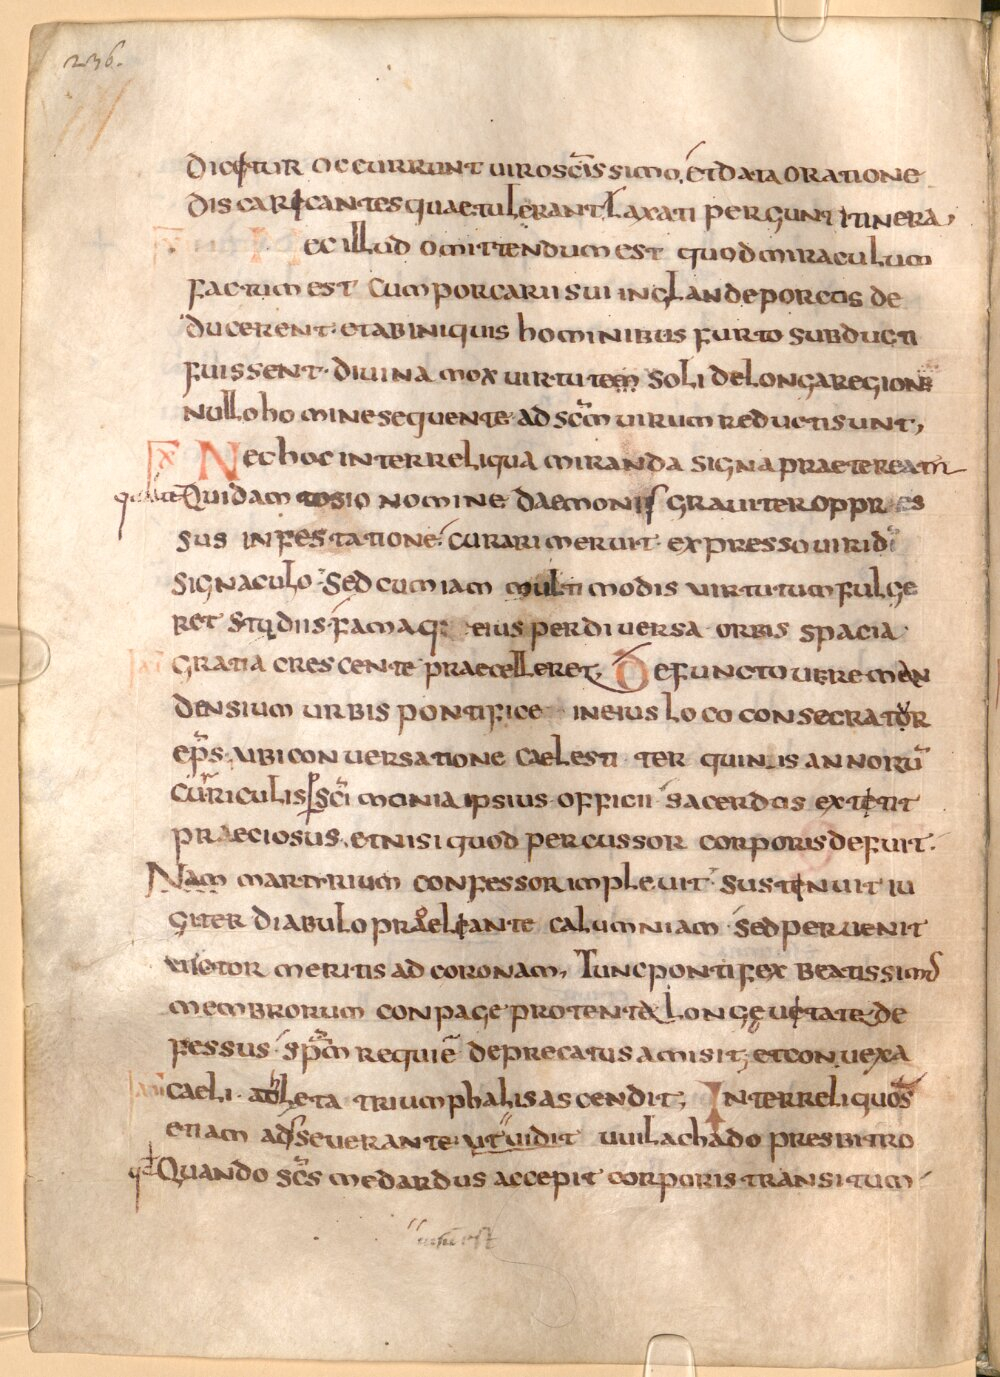 236.
dicitur occurrunt uiro sc̄issimo, et data oratione
discaricantes quae tulerant laxati pergunt itinera,
Nec illud omittendum est quod miraculum
factum est cum porcarii sui in glande porcos de
ducerent et ab iniquis hominibus furto subducti
fuissent. diuina mox uirtutem soli de longa regione
nullo homine sequente ad sc̄m uirum reducti sunt,
XI Nec hoc inter reliqua miranda signa praetereatur
qualiter Quidam tosio nomine daemonis grauiter oppres
sus infestatione curari meruit expresso uiri dī
signaculo. Sed cum iam multimodis uirtutum fulge
ret studiis famaq: eius per diuersa orbis spacia
gratia crescente praecelleret, Defuncto uere men
densium urbis pontifice in eius loco consecrator
ep̄s. ubi conuersatione caelesti ter quinis annorū
curriculis p sc̄i moenia ipsius officii sacerdos extitit
praeciosus, et nisi quod percussor corporis defuit.
Nam martyrium confessor impleuit. Sustenuit iu
giter diabulo praeliante calumniam sed peruenit
uictor meritis ad coronam, Tunc pontifex beatissimus
membrorum conpage protenta longeuitate de
fessus sp̄m requiē deprecatus amisit, et conuexa
caeli. athleta triumphalis ascendit, Inter reliquos
etiam adseuerante ut uidit uuilachado presbitro
Quando sc̄s medardus accepit corporis transitum